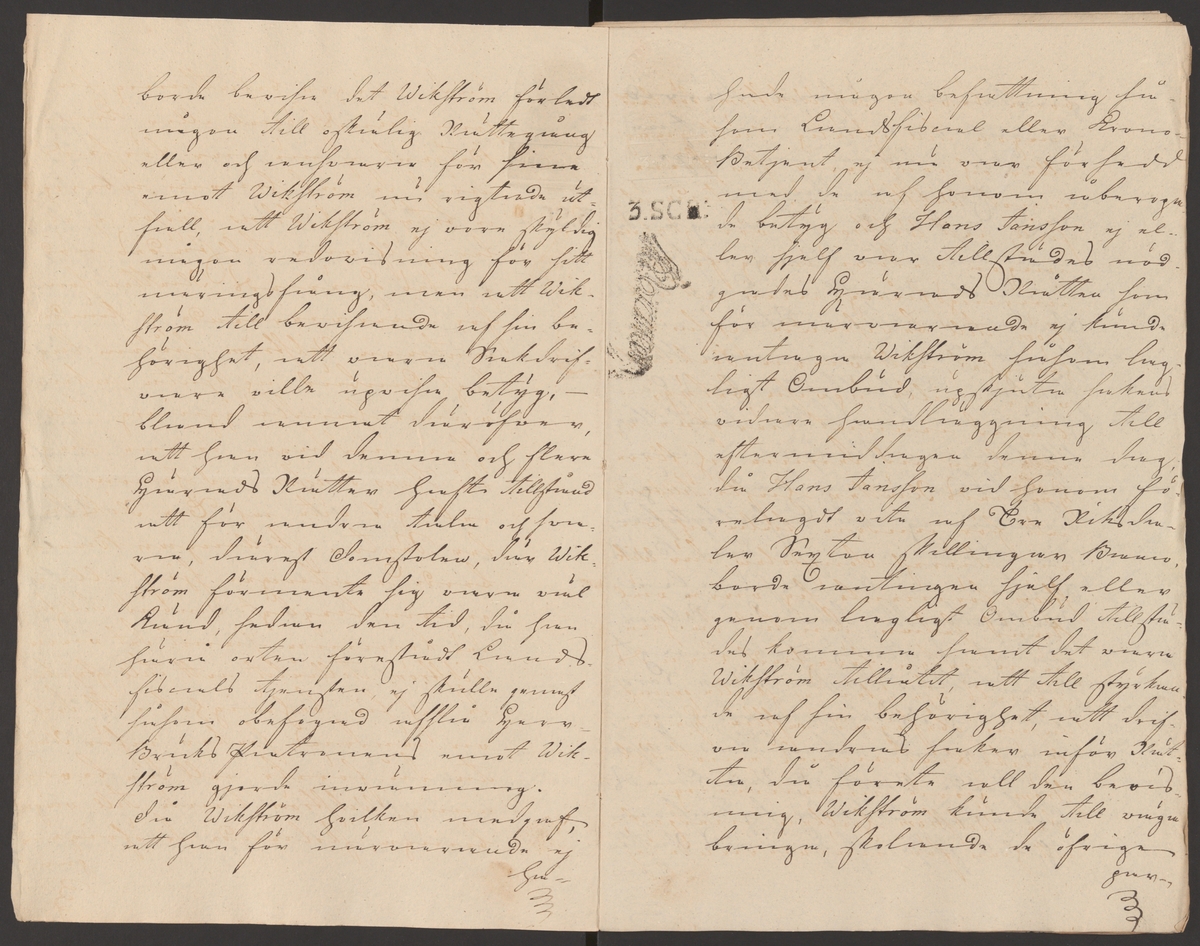 borde bevisa det Wikström förledt
någon till oskälig Rättegång
eller och ansvara för sina
emot Wikström nu rigtade ut-
fall, att Wikström ej vore skyldig
någon redovisning för sitt
näringsfång, men att Wik-
ström till bevisande af sin be-
hörighet, att vara Sakdrif-
vare ville upvisa betyg, —
bland annat däröfver,
att han vid denna och flera
Härads Rätter haft tillstånd
att för andra tala och sva-
ra, därest Domstolen, där Wik-
ström förmente sig vara väl
Känd, sedan den tid, då han
härа orten förestådt Lands-
fiscals tjensten, ej skulle genast
såsom obefogad afslå Herr
Bruks Patronens emot Wik-
ström gjorde invänning.
Då Wikström hvilken medgaf,
att han för närvarande ej
ha-
hade någon befattning så-
som Landsfiscal eller Krono-
Betjent, ej nu var försedd
med de af honom åberopa-
de betyg och Hans Jansson ej el-
ler sjelf var tillstädes nöd-
gades Härads Rätten som
för närvarande ej kunde
antaga Wikström såsom lag-
ligt Ombud, upskjuta sakens
vidare handläggning till
eftermiddagen denna dag,
då Hans Jansson vid honom fö-
relagdt vite af Tre Riksda-
ler Sexton skillingar Banco,
borde antingen sjelf eller
genom lagligt Ombud tillstä-
des komma samt det vara
Wikström tillåtit, att till styrkan-
de af sin behörighet, att drif-
va andras saker inför Rät-
ta, då förete all den bevis-
ning, Wikström kunde till väga
bringa, skolande de öfriga
par-
3.SCH: